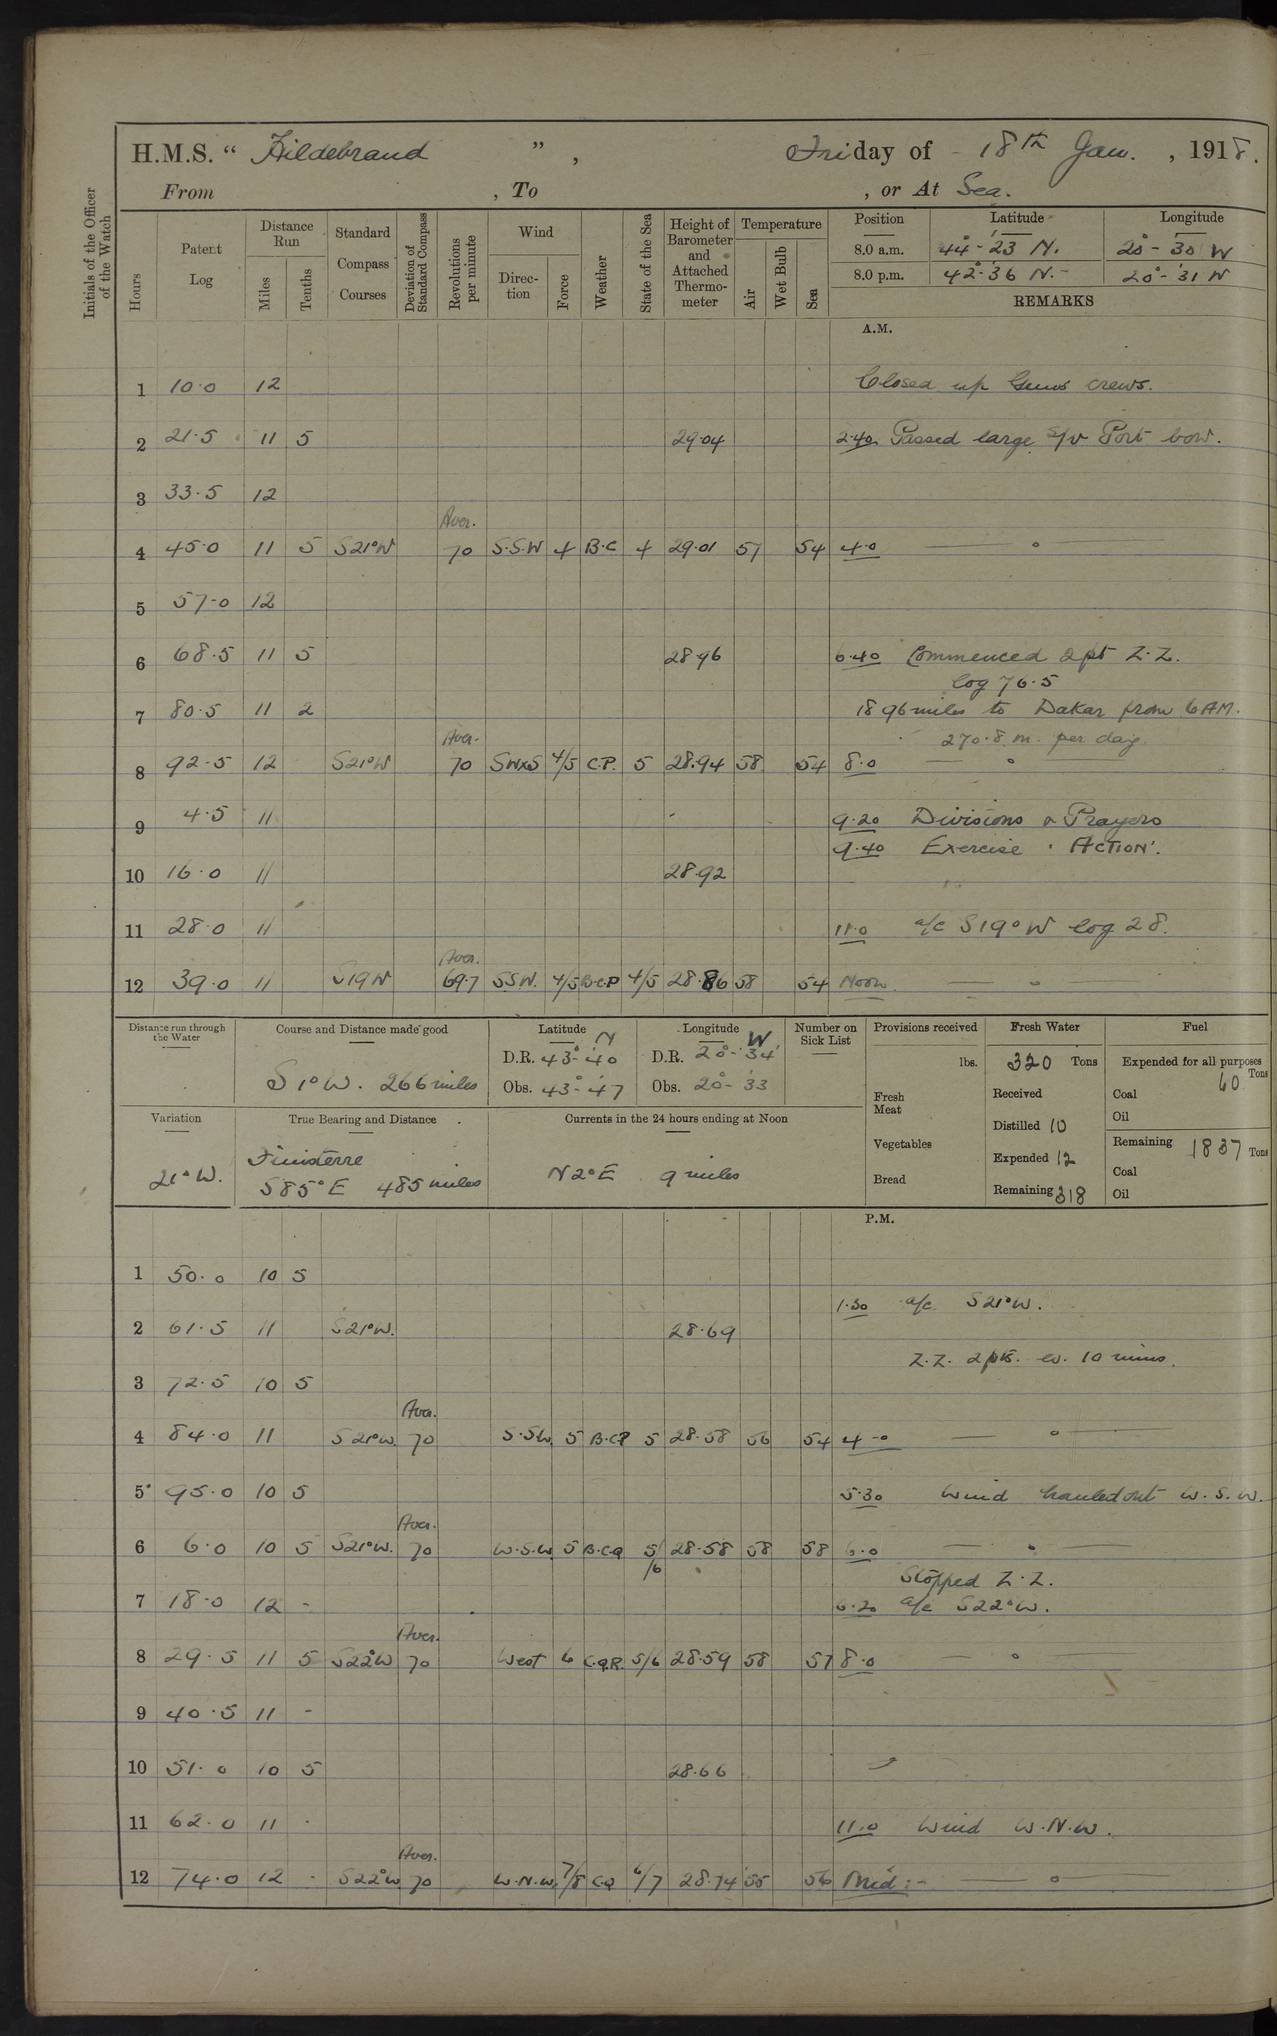 H.M.S. “ Hildebrand ” , Friday of 18th Jan. , 1918.
From , To , or At Sea.
Initials of the Officer of the Watch
Hours
Patent Log
Distance Run
Miles
Tenths
Standard Compass Courses
Deviation of Standard Compass
Revolutions per minute
Wind
Direction
Force
Weather
State of the Sea
Height of Barometer and Attached Thermometer
Temperature
Air
Wet Bulb
Sea
Position Latitude Longitude
8.0 a.m. 44°-23' N. 20°-30' W
8.0 p.m. 42°-36' N.- 20°-31' W
REMARKS
A.M.
1 10.0 12 Closed up Guns crews.
2 21.5 11 5 29.04 2.40 Passed large s/v Port bow.
3 33.5 12
Aver.
4 45.0 11 5 S21°W 70 S.S.W 4 B.C 4 29.01 57 54 4.0 — o —
5 57.0 12
6 68.5 11 5 28.96 6.40 Commenced 2pt Z.Z.
log 76.5
7 80.5 11 2 1896 miles to Dakar from 6AM.
Aver. 270.8 m. per day
8 92.5 12 S21°W 70 SWxS 4/5 C.P. 5 28.94 58 54 8.0 — o
9 4.5 11 9.20 Divisions & Prayers
9.40 Exercise 'ACTION'.
10 16.0 11 28.92
11 28.0 11 11.0 a/c S19°W log 28.
Aver.
12 39.0 11 S19W 69.7 SSW. 4/5 B.C.P 4/5 28.86 58 54 Noon — o —
Distance run through the Water
Course and Distance made good
S1°W. 266 miles
Latitude N
D.R. 43°-40
Obs. 43°-47
Longitude W
D.R. 20°-34'
Obs. 20°-33
Number on Sick List
Provisions received
lbs.
Fresh Meat
Vegetables
Bread
Fresh Water
320 Tons
Received
Distilled 10
Expended 12
Remaining 318
Fuel
Expended for all purposes
60 Tons
Coal
Oil
Remaining 1837 Tons
Coal
Oil
Variation
21°W.
True Bearing and Distance
Finisterre
S85°E 485 miles
Currents in the 24 hours ending at Noon
N2°E 9 miles
P.M.
1 50.0 10 5
1.30 a/c S21°W.
2 61.5 11 S21°W. 28.69
Z.Z. 2pts. ev. 10 mins.
3 72.5 10 5
Aver.
4 84.0 11 S21°W. 70 S.SW. 5 B.C.P 5 28.58 56 54 4-0 — o —
5 95.0 10 5 5.30 Wind hauled out W.S.W.
Aver.
6 6.0 10 5 S21°W. 70 W.S.W. 5 B.C.Q 5/6 28.58 58 58 6.0 — o —
Stopped Z.Z.
7 18.0 12 - 6.20 a/c S22°W.
Aver.
8 29.5 11 5 S22°W 70 West 6 C.Q.R. 5/6 28.59 58 57 8.0 — o —
9 40.5 11 -
10 51.0 10 5 28.66
11 62.0 11 . 11.0 Wind W.N.W.
Aver.
12 74.0 12 - S22°W 70 W.N.W. 7/8 C.Q 6/7 28.74 55 56 Mid:- — o —